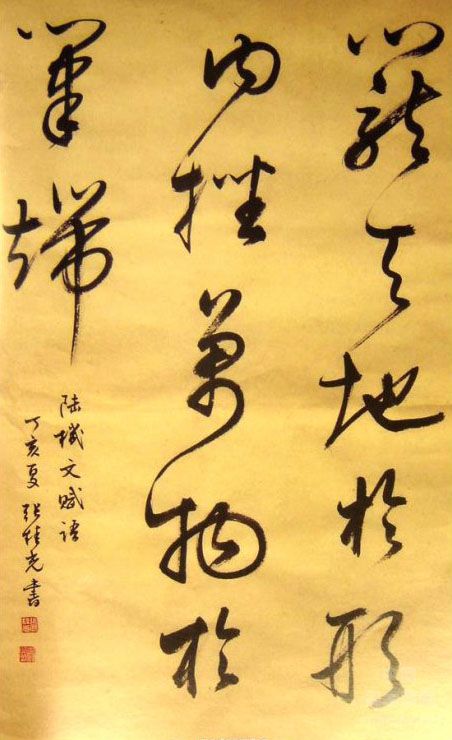 籠天地於形
內挫萬物於
筆端
陸機文賦語
丁亥夏張桂光書